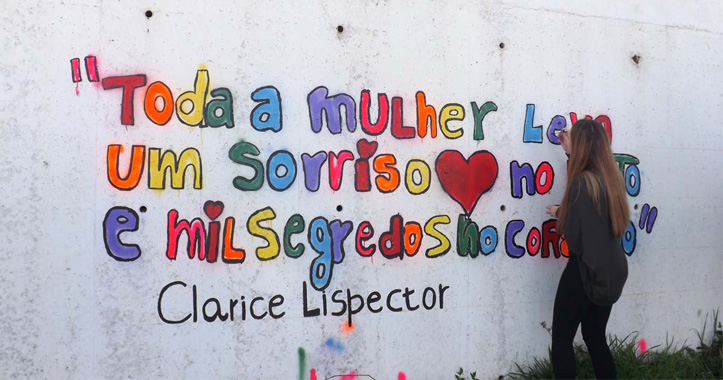 "Toda a mulher
um sorriso no
e mil segredos no "
Clarice Lispector